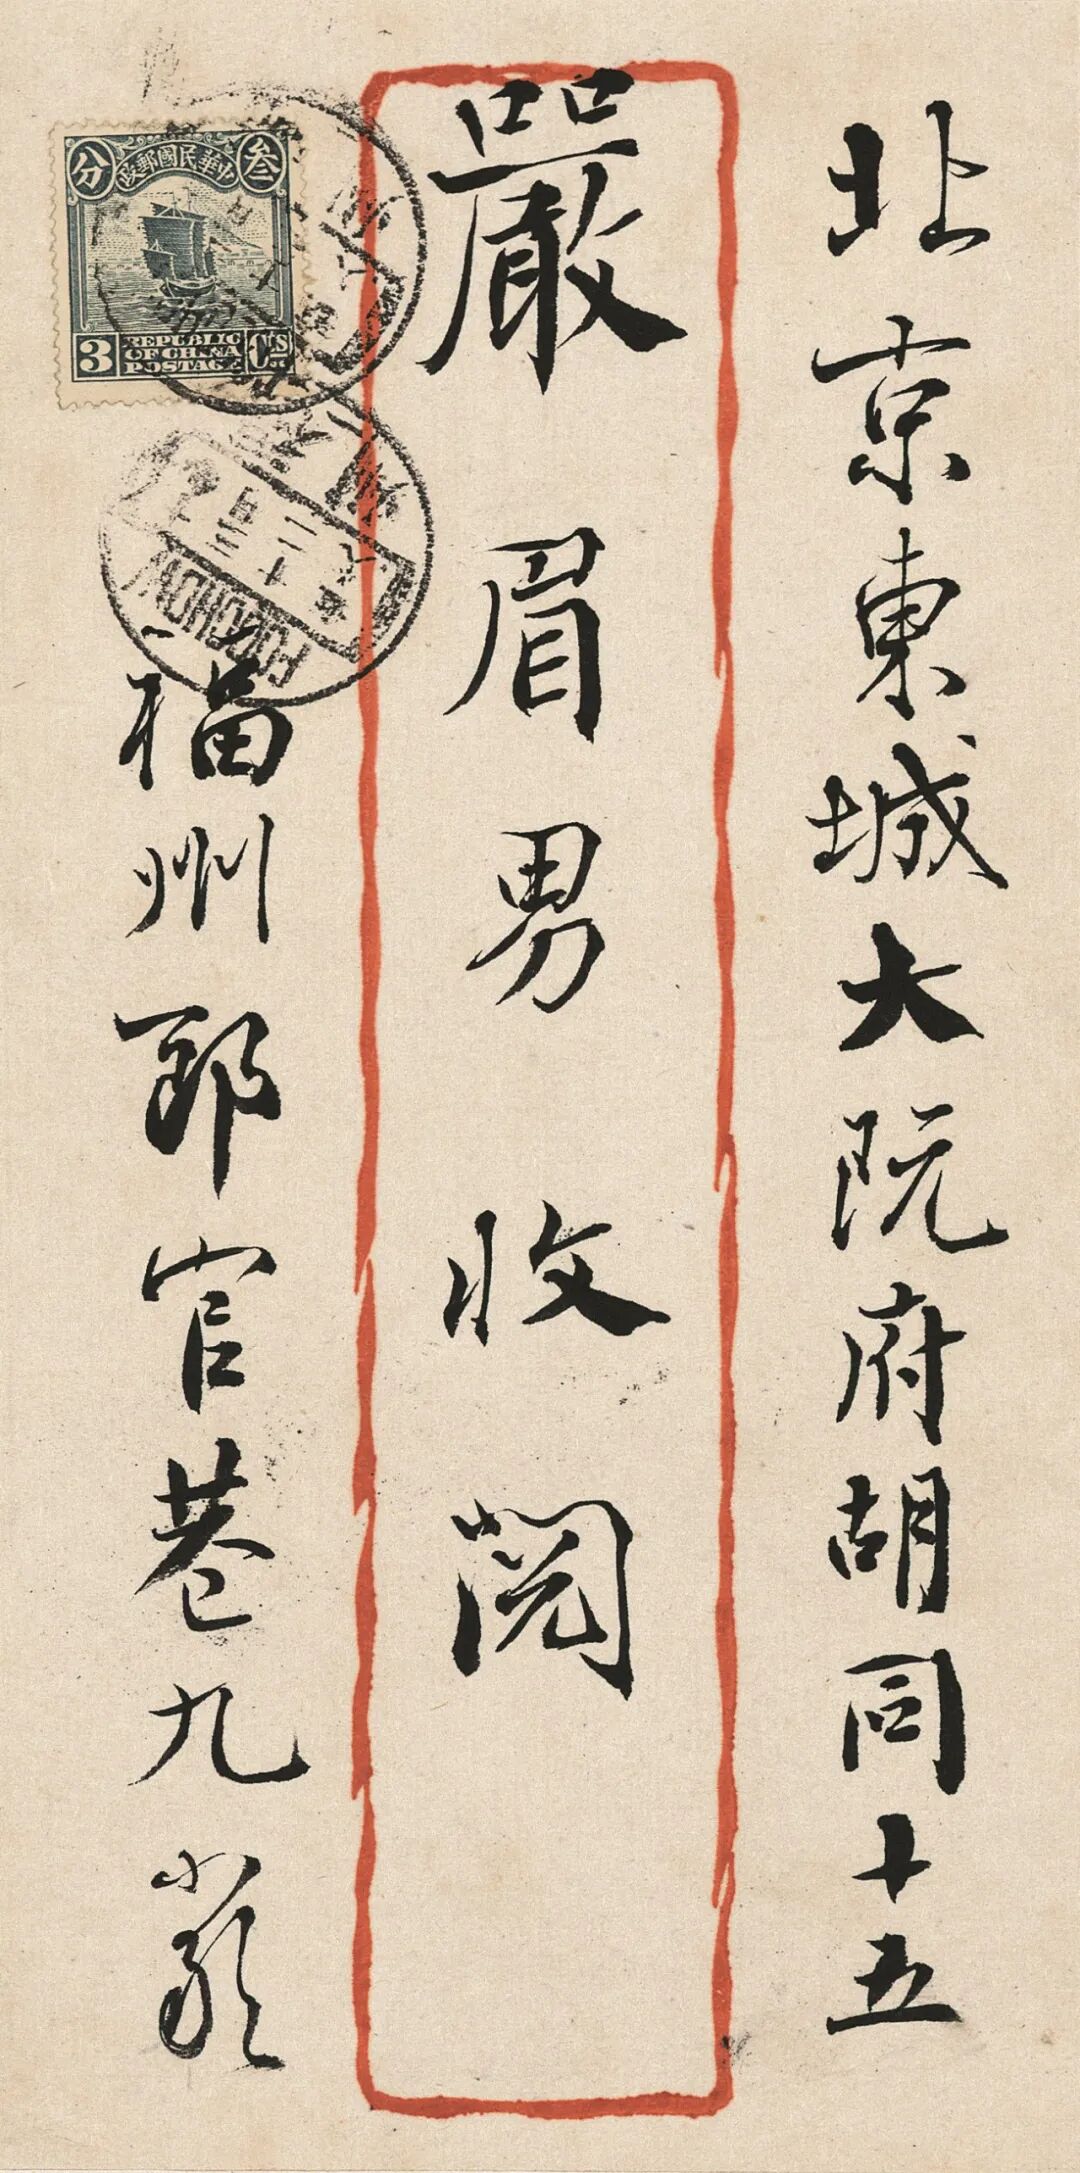 北京東城大阮府胡同十五
嚴眉男收閱
福州郎官巷九嚴
叁分
中華民國郵政
3 REPUBLIC OF CHINA POSTAGE CTS
FOOCHOW